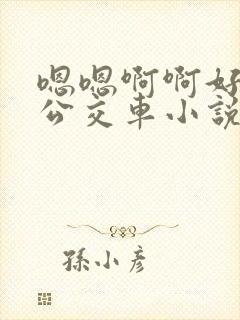 嗯嗯啊啊好
公交车小說
孫小彦